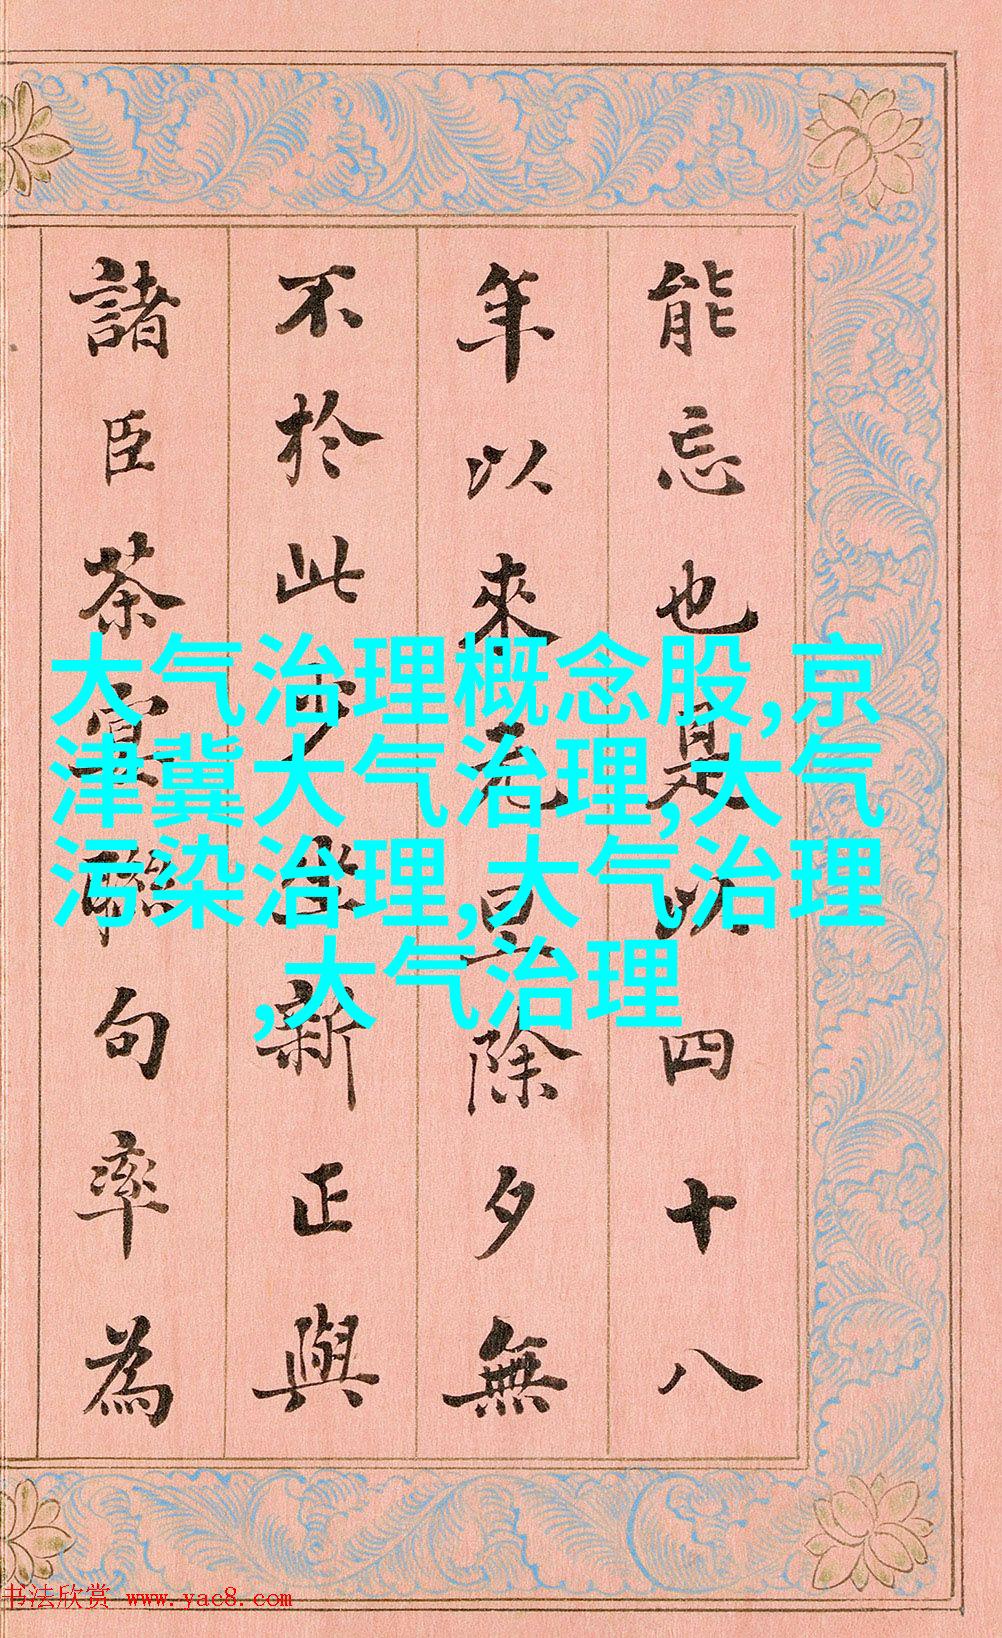 能忘也是以四十八
年以來元旦除夕無
不於此新正與
諸臣茶宴聯句率為
大气治理概念股,京
津冀大气治理,大气
污染治理,大气治理
,大气治理
书法欣赏 www.yac8.com